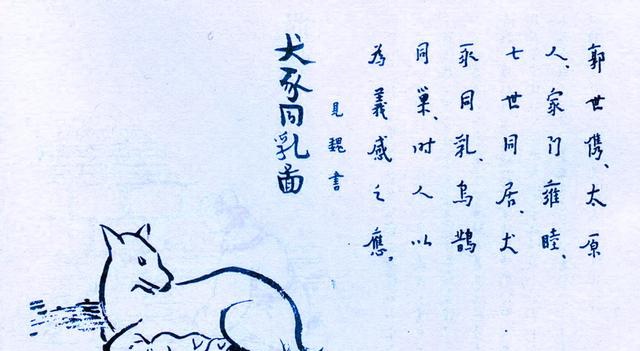 郭世儁、太原
人、家门雍睦、
七世同居、犬
豕同乳、烏鵲
同巢、时人以
為義感之應。
見魏書
犬豕同乳啚